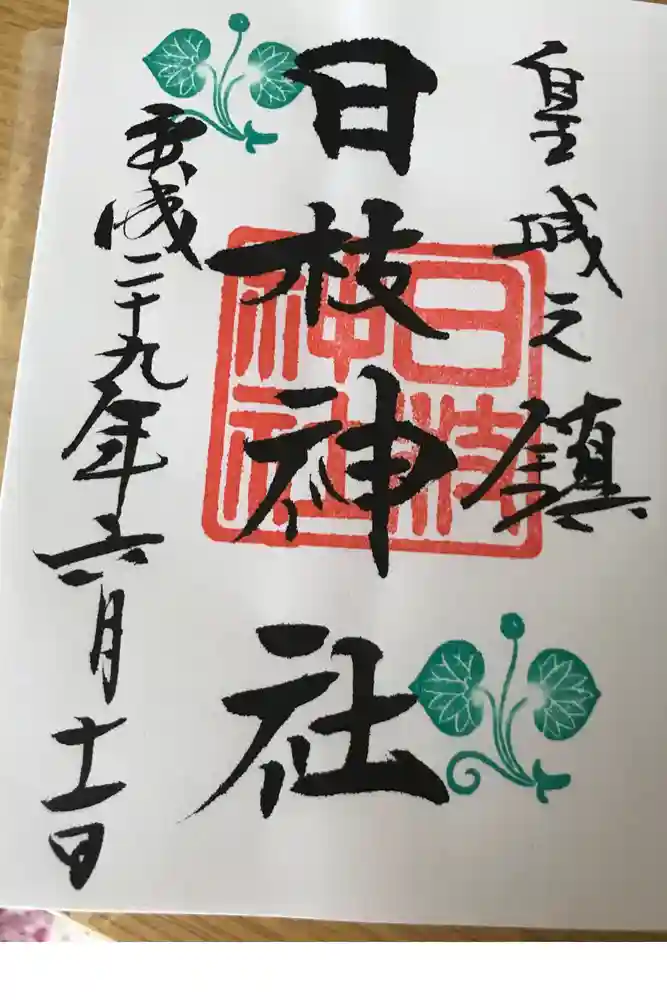 皇城之鎮
日枝神社
日枝
神社
平成二十九年六月十一日